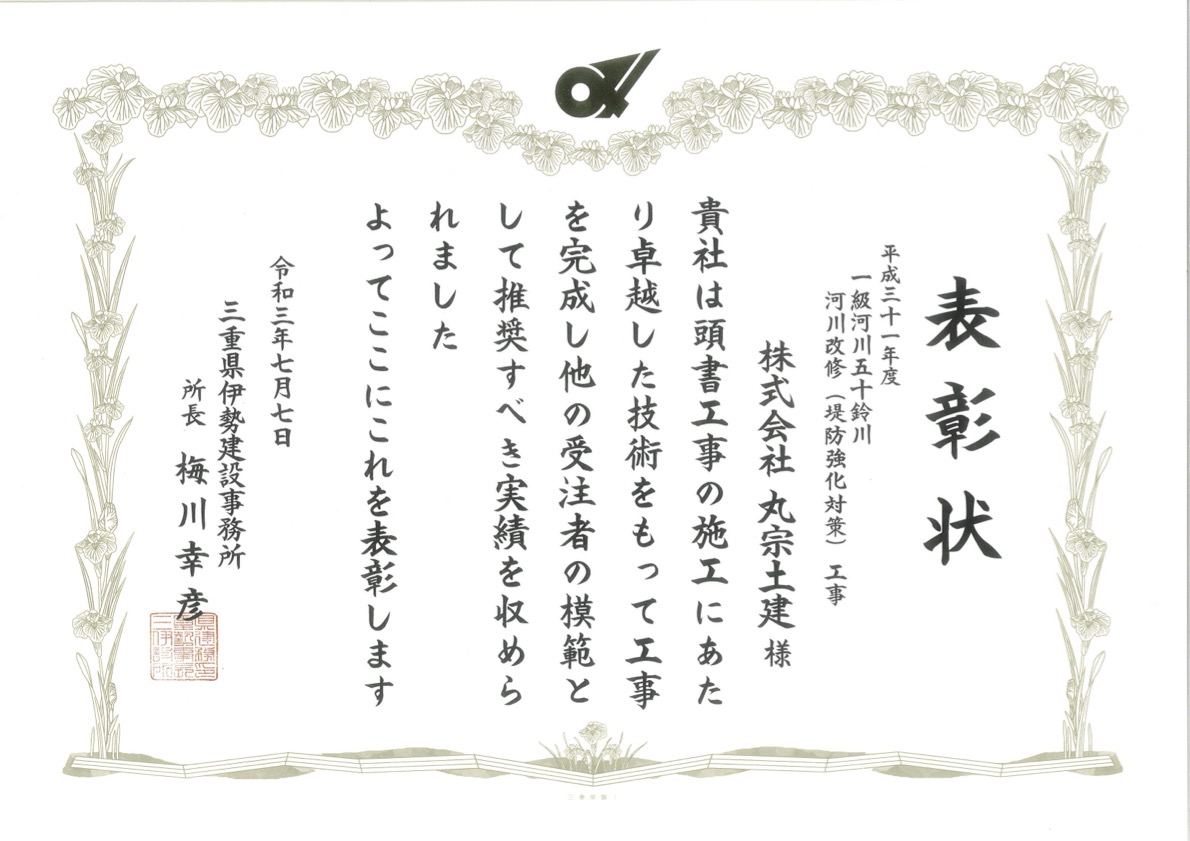 表彰状
平成三十一年度
一級河川五十鈴川
河川改修（堤防強化対策）工事
株式会社 丸宗土建 様
貴社は頭書工事の施工にあた
り卓越した技術をもって工事
を完成し他の受注者の模範と
して推奨すべき実績を収めら
れました
よってここにこれを表彰します
令和三年七月七日
三重県伊勢建設事務所
所長 梅川幸彦